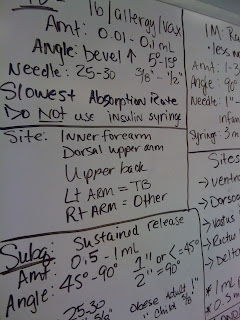 Tb/allergy/vax
Amt: 0.01 - 0.1 mL
Angle: bevel ↑ 5°-15°
Needle: 25-30 3/8" - 1/2"
Slowest Absorption Rate
Do Not use insulin syringe
Site: Inner forearm
Dorsal upper arm
Upper back
Lt Arm = TB
Rt Arm = Other
Subq: Sustained release
Amt: 0.5 - 1 mL
Angle: 45°-90° 1" or < = 45°
2" = 90°
25-30
obese adult 1"
" child 5/8"
5/8"
IM:
less
Amt: 1-3
Angle: 90°
Needle: 1"
infan
Syringe: 3 m
Sites
→ Ventro
→ Dorso
→ Vastus
→ Rectus
→ Delto
* 1 mL
* 0.5 m